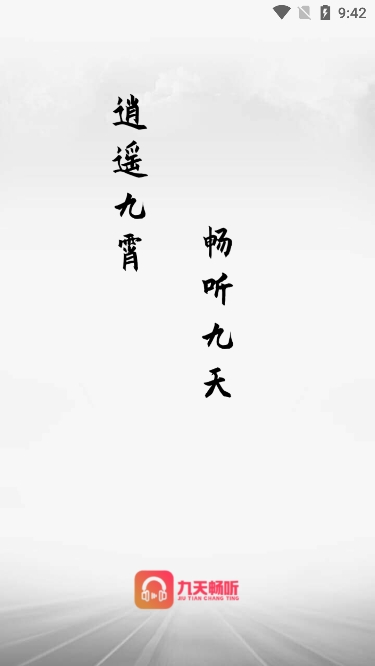 9:42
逍遥九霄
畅听九天
九天畅听
JIU TIAN CHANG TING